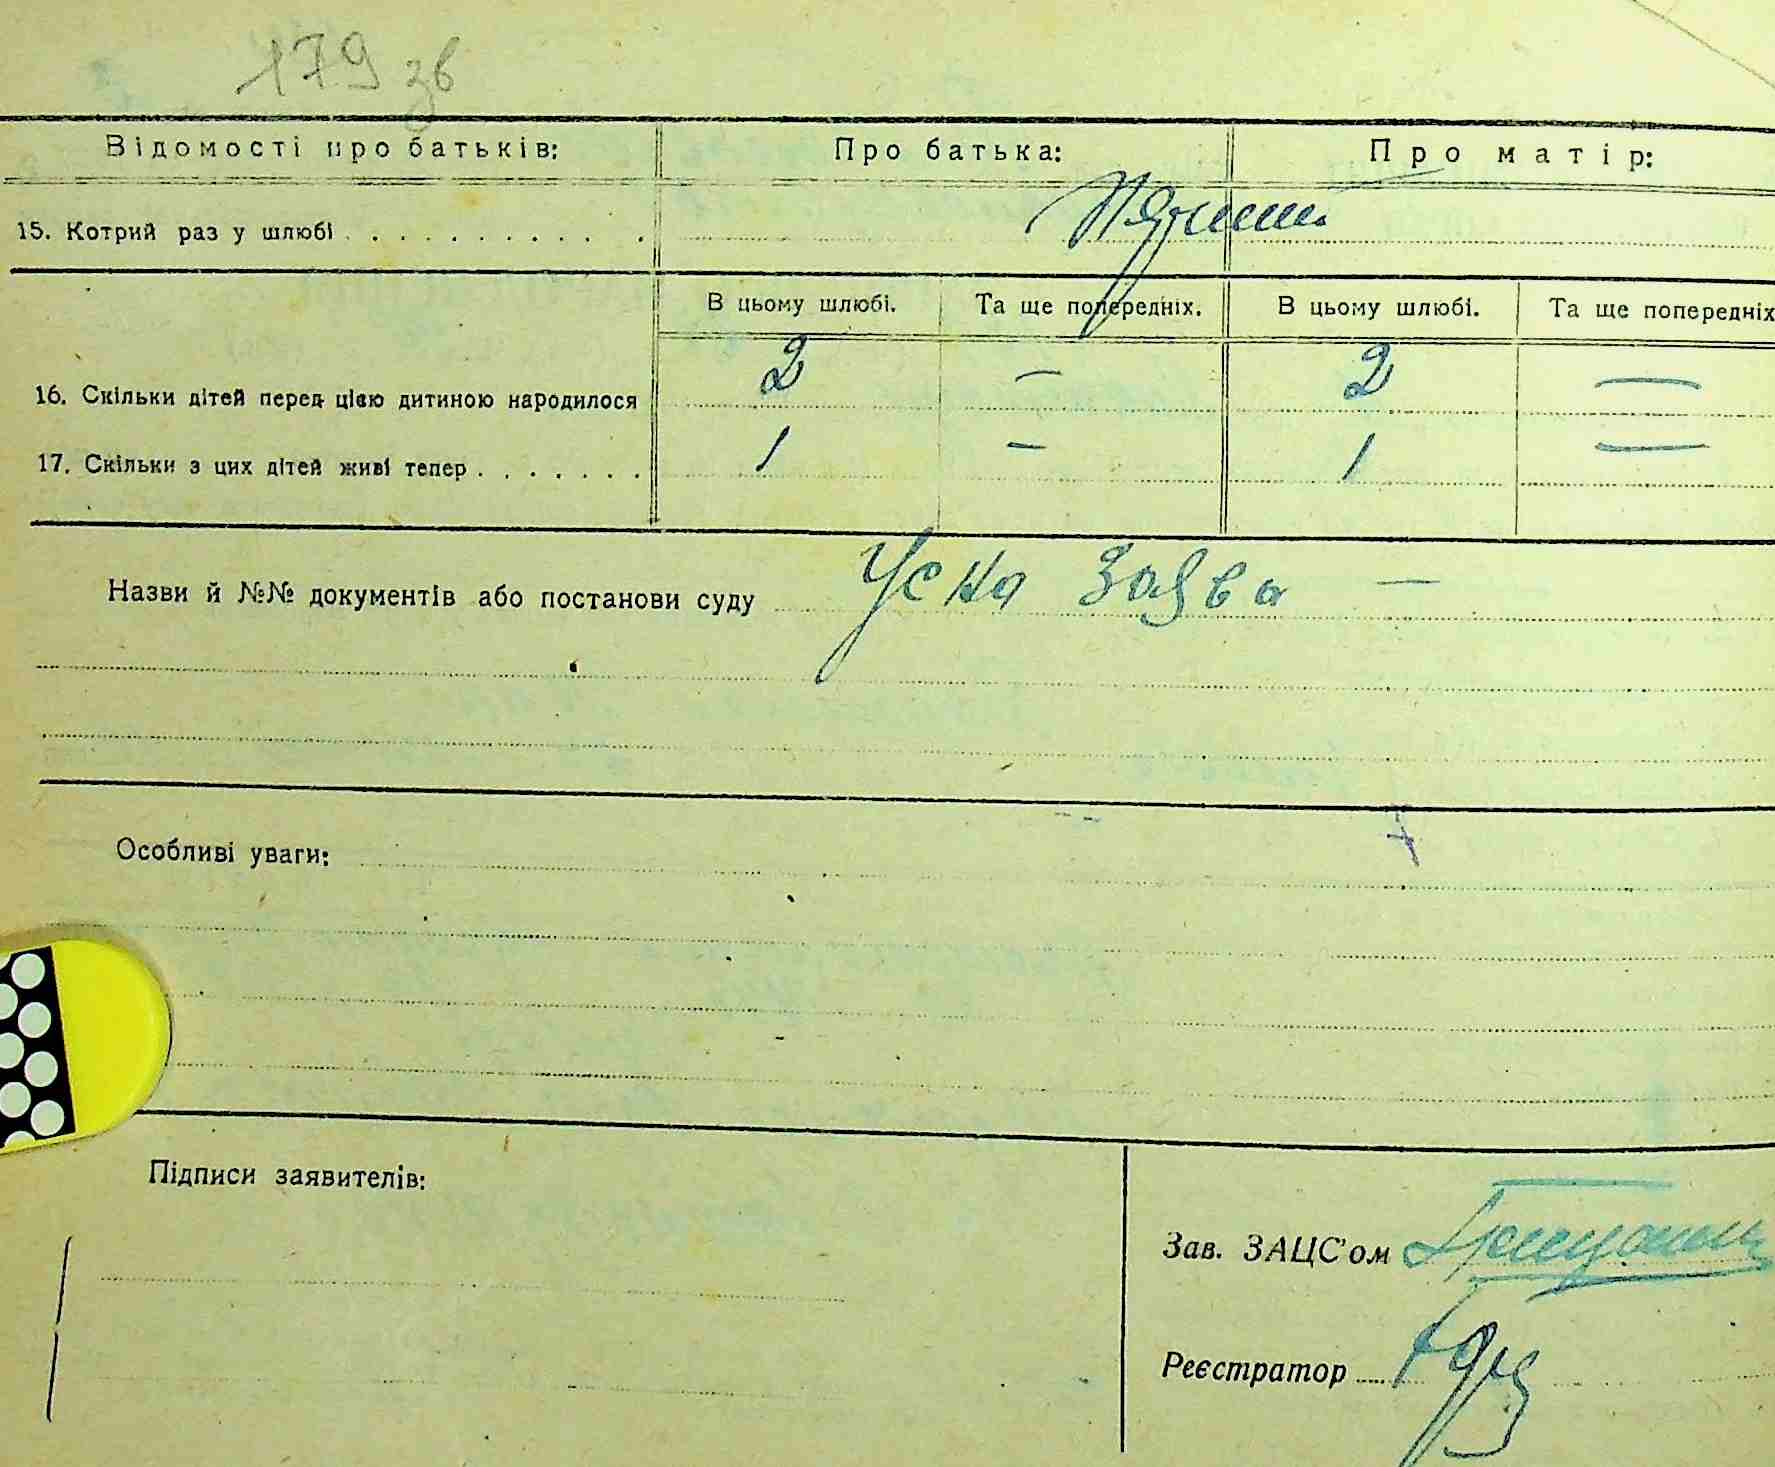 179 зв
Відомості про батьків: Про батька: Про матір:
15. Котрий раз у шлюбі
В цьому шлюбі. Та ще попередніх. В цьому шлюбі. Та ще попередніх
16. Скільки дітей перед цією дитиною народилося 2 — 2 —
17. Скільки з цих дітей живі тепер 1 — 1 —
Назви й №№ документів або постанови суду Усна заява —
Особливі уваги:
Підписи заявителів:
Зав. ЗАЦС'ом
Реєстратор